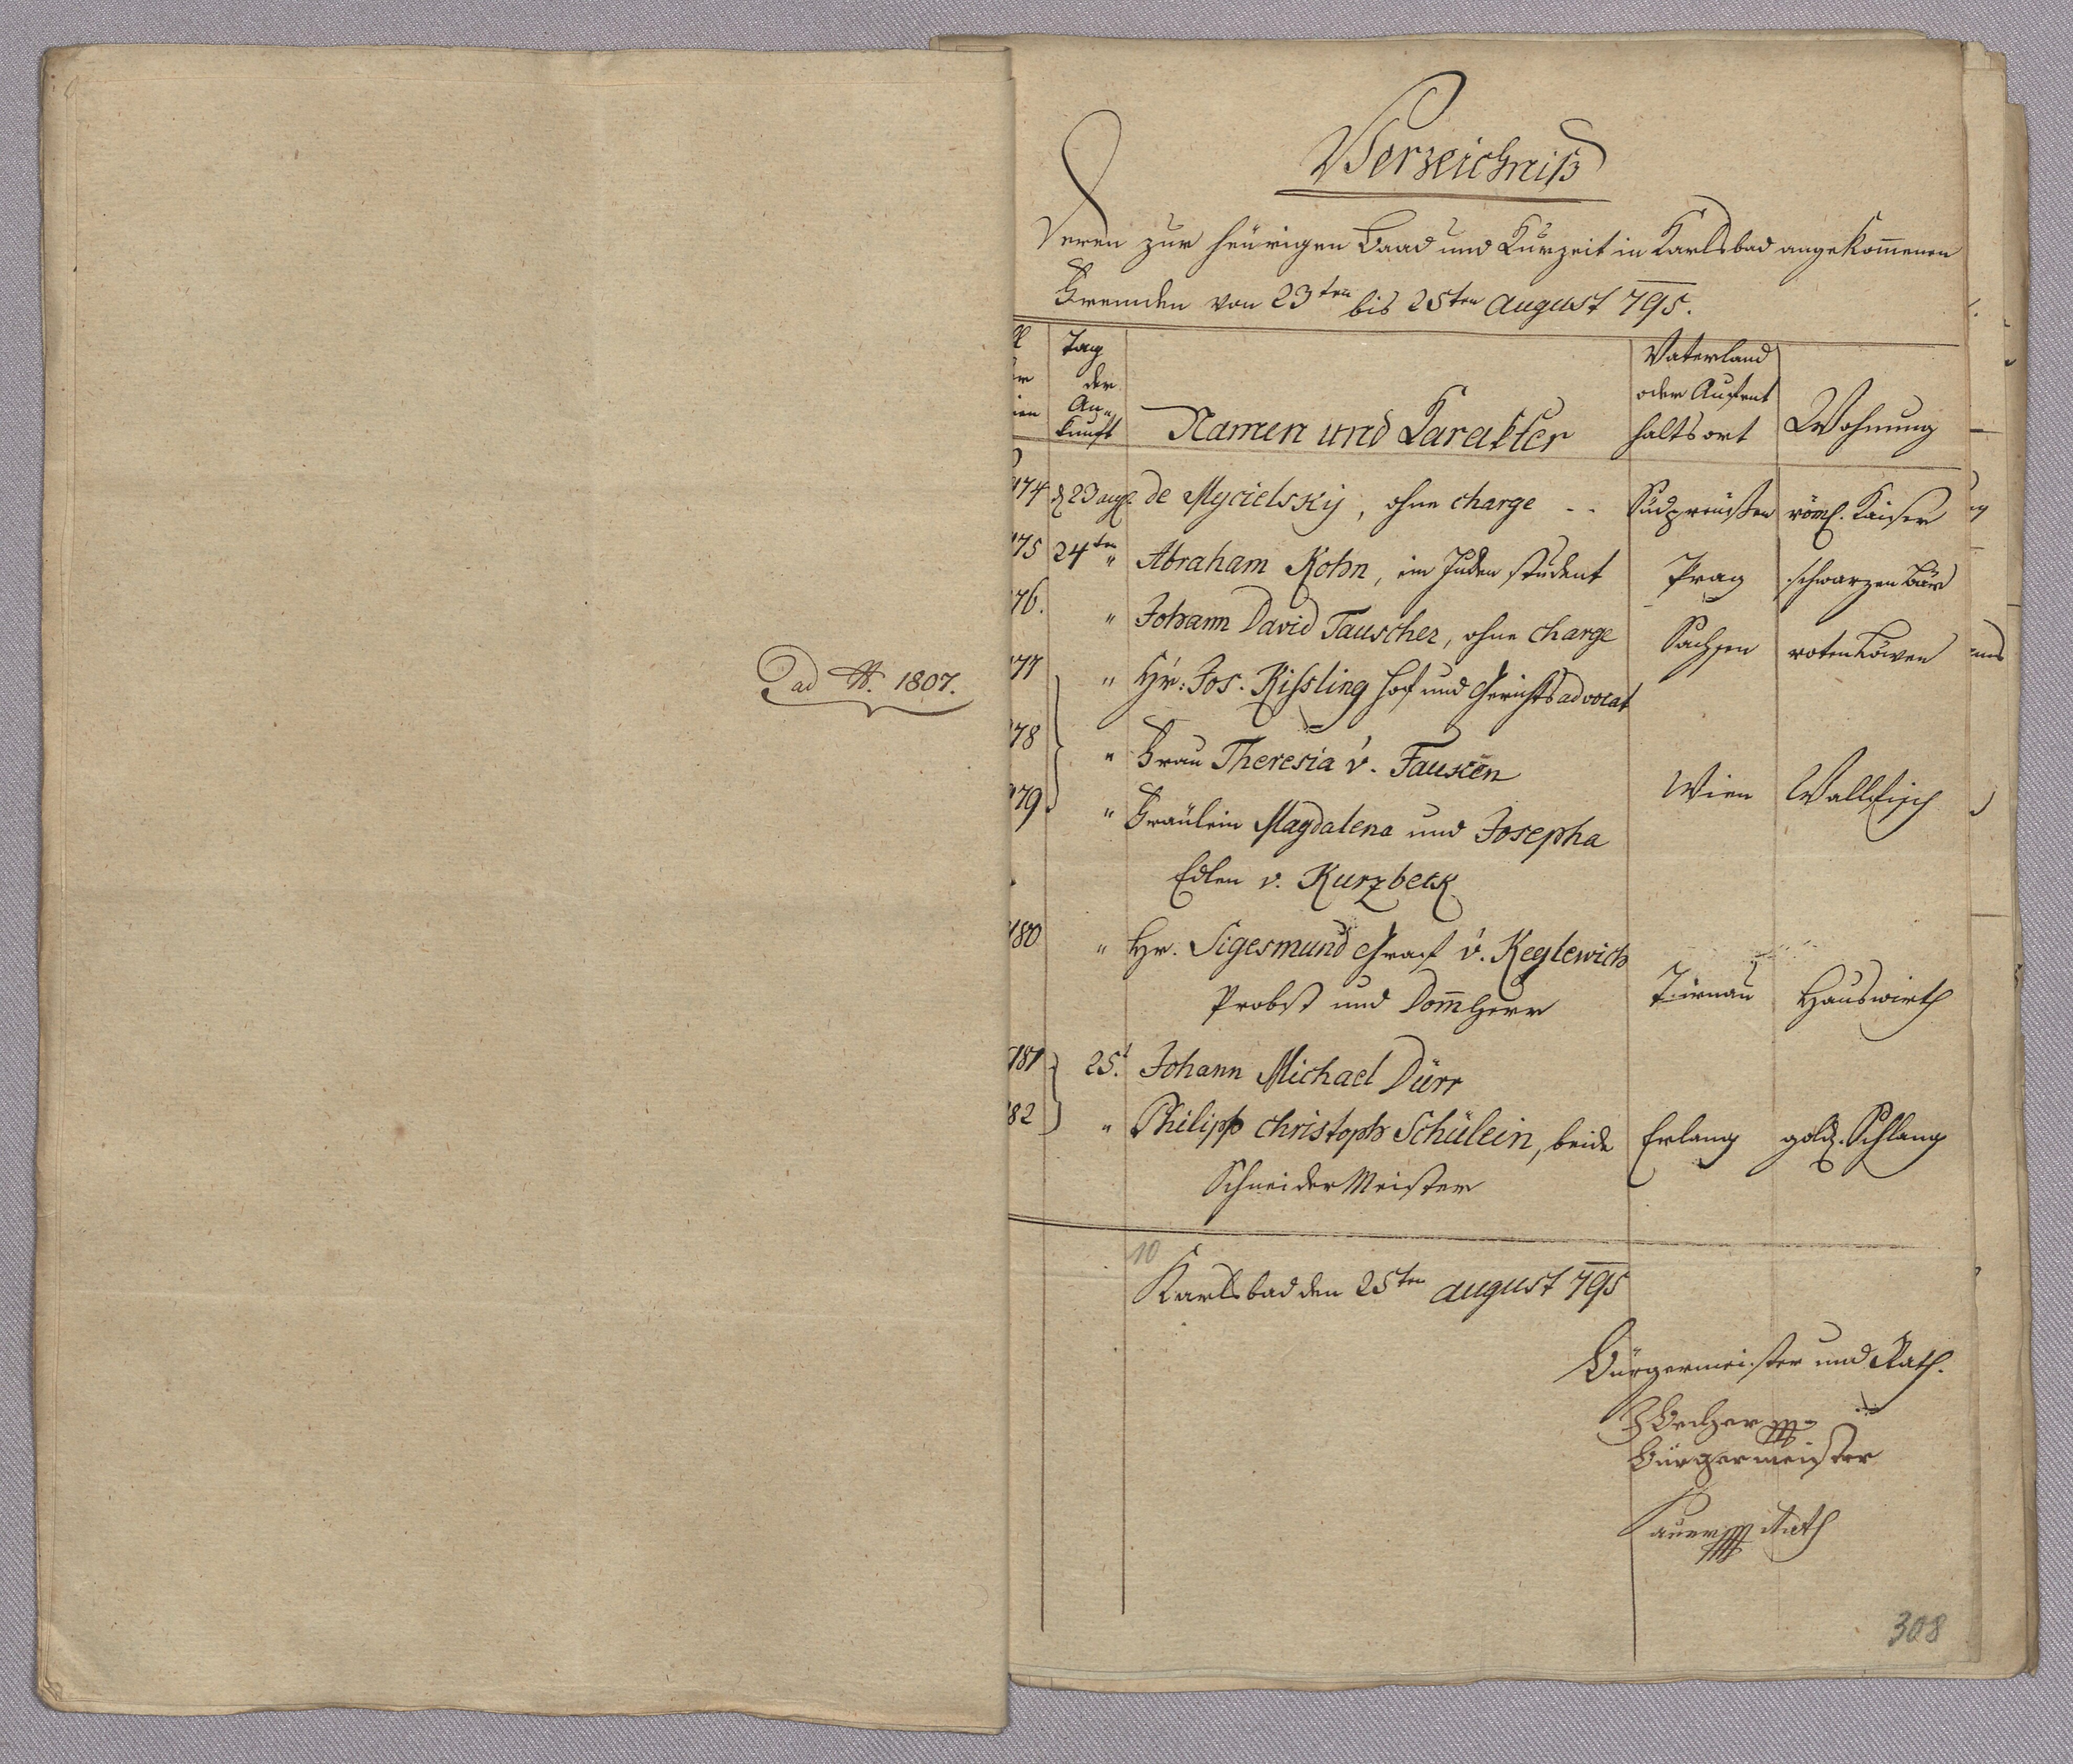 ad N. 1807.
Verzeichniß
Deren zur heürigen Baad und Kurzeit in Karlsbad angekom̅enen
Fremden von 23ten bis 25ten August 795.
Tag
der
An„
kunft
Namen und Karakter
Vaterland
oder Aufent
haltsort
Wohnung
174 d 23 aug. de Mycielsky, ohne charge -- Südpreüßen röm. Kaiser
175 24ten " Abraham Kohn, ein Juden student Prag schwarzen Bär
176. " Johann David Tauscher, ohne charge Sachsen roten Löwen
177 " Hr: Jos. Kißling Hof und Gerichtsadvocat
178 " Frau Theresia v. Fausken
179 " Fräulein Magdalena und Josepha Wien Wallfisch
Edlen v. Kurzbeck
180 " Hr. Sigesmund Graf v. Keglewich
Probst und Dom̅herr Tirnau Hauswirth
181 25t. Johann Michael Dürr
182 " Philipp Christoph Schülein, beide Erlang gold. Schlang
Schneider Meister
10
Karlsbad den 25ten august 795
Bürgermeister und Rath.
Bürgermeister
Rath
308